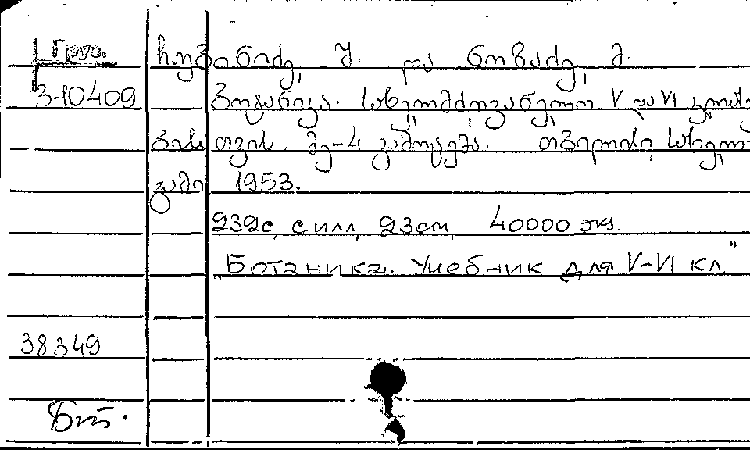 Груз. ჩუბინიძე, შ. და ნოზაძე, მ.
3-10409 ბოტანიკა. სახელმძღვანელო V და VI კლასე-
ბისთვის. მე-4 გამოცემა. თბილისი, სახელ-
გამი 1953.
232с, с илл, 23см, 40000 экз.
"Ботаника. Учебник для V-VI кл"
38349
Бот.